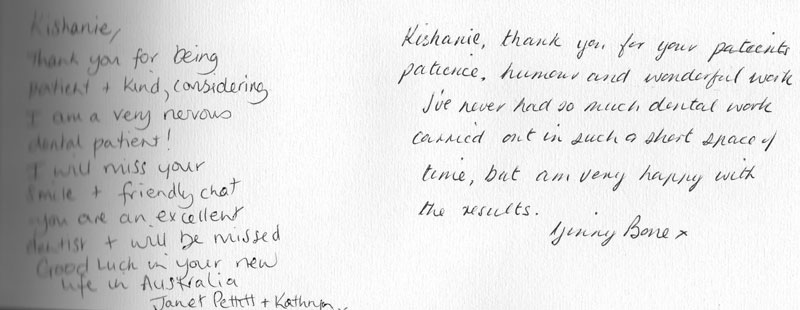 Kishanie,
Thank you for being
patient + kind, considering
I am a very nervous
dental patient!
I will miss your
smile + friendly chat
you are an excellent
dentist + will be missed
Good Luck in your new
life in Australia
Janet Pettitt + Kathryn
Kishanie, thank you for your pateents
patience, humour and wonderful work
I've never had so much dental work
carried out in such a short space of
time, but am very happy with
the results.
Ginny Bone x